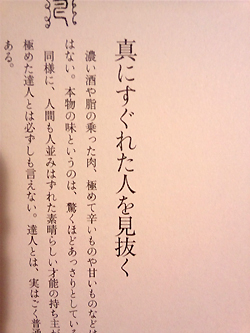 真にすぐれた人を見抜く
濃い酒や脂の乗った肉、極めて辛いものや甘いものなどは
はない。本物の味というのは、驚くほどあっさりとしている
同様に、人間も人並みはずれた素晴らしい才能の持ち主が
極めた達人とは必ずしも言えない。達人とは、実はごく普通
ある。